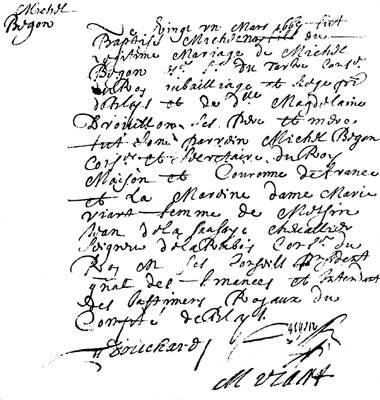 Michel
Begon
Le vingt un Mars 1667 fut
Baptisé Michel du
légitime Mariage de Michel
Begon du tertre Conser
du Roy au bailliage et siege
de Bloys et de Dlle Magdelaine
Drouillon ses Pere et mere
fut son parrein Michel Begon
Conser et secretaire du Roy
Maison et Couronne de France
et La Mareine dame Marie
viart femme de Messire
de la saussaye chevallier
seigneur de la Conser du
Roy en ses Conseills President
gnal des finances et Intendant
des bastimens Royaux du
Comté de Bloys
Bouchard
M viart